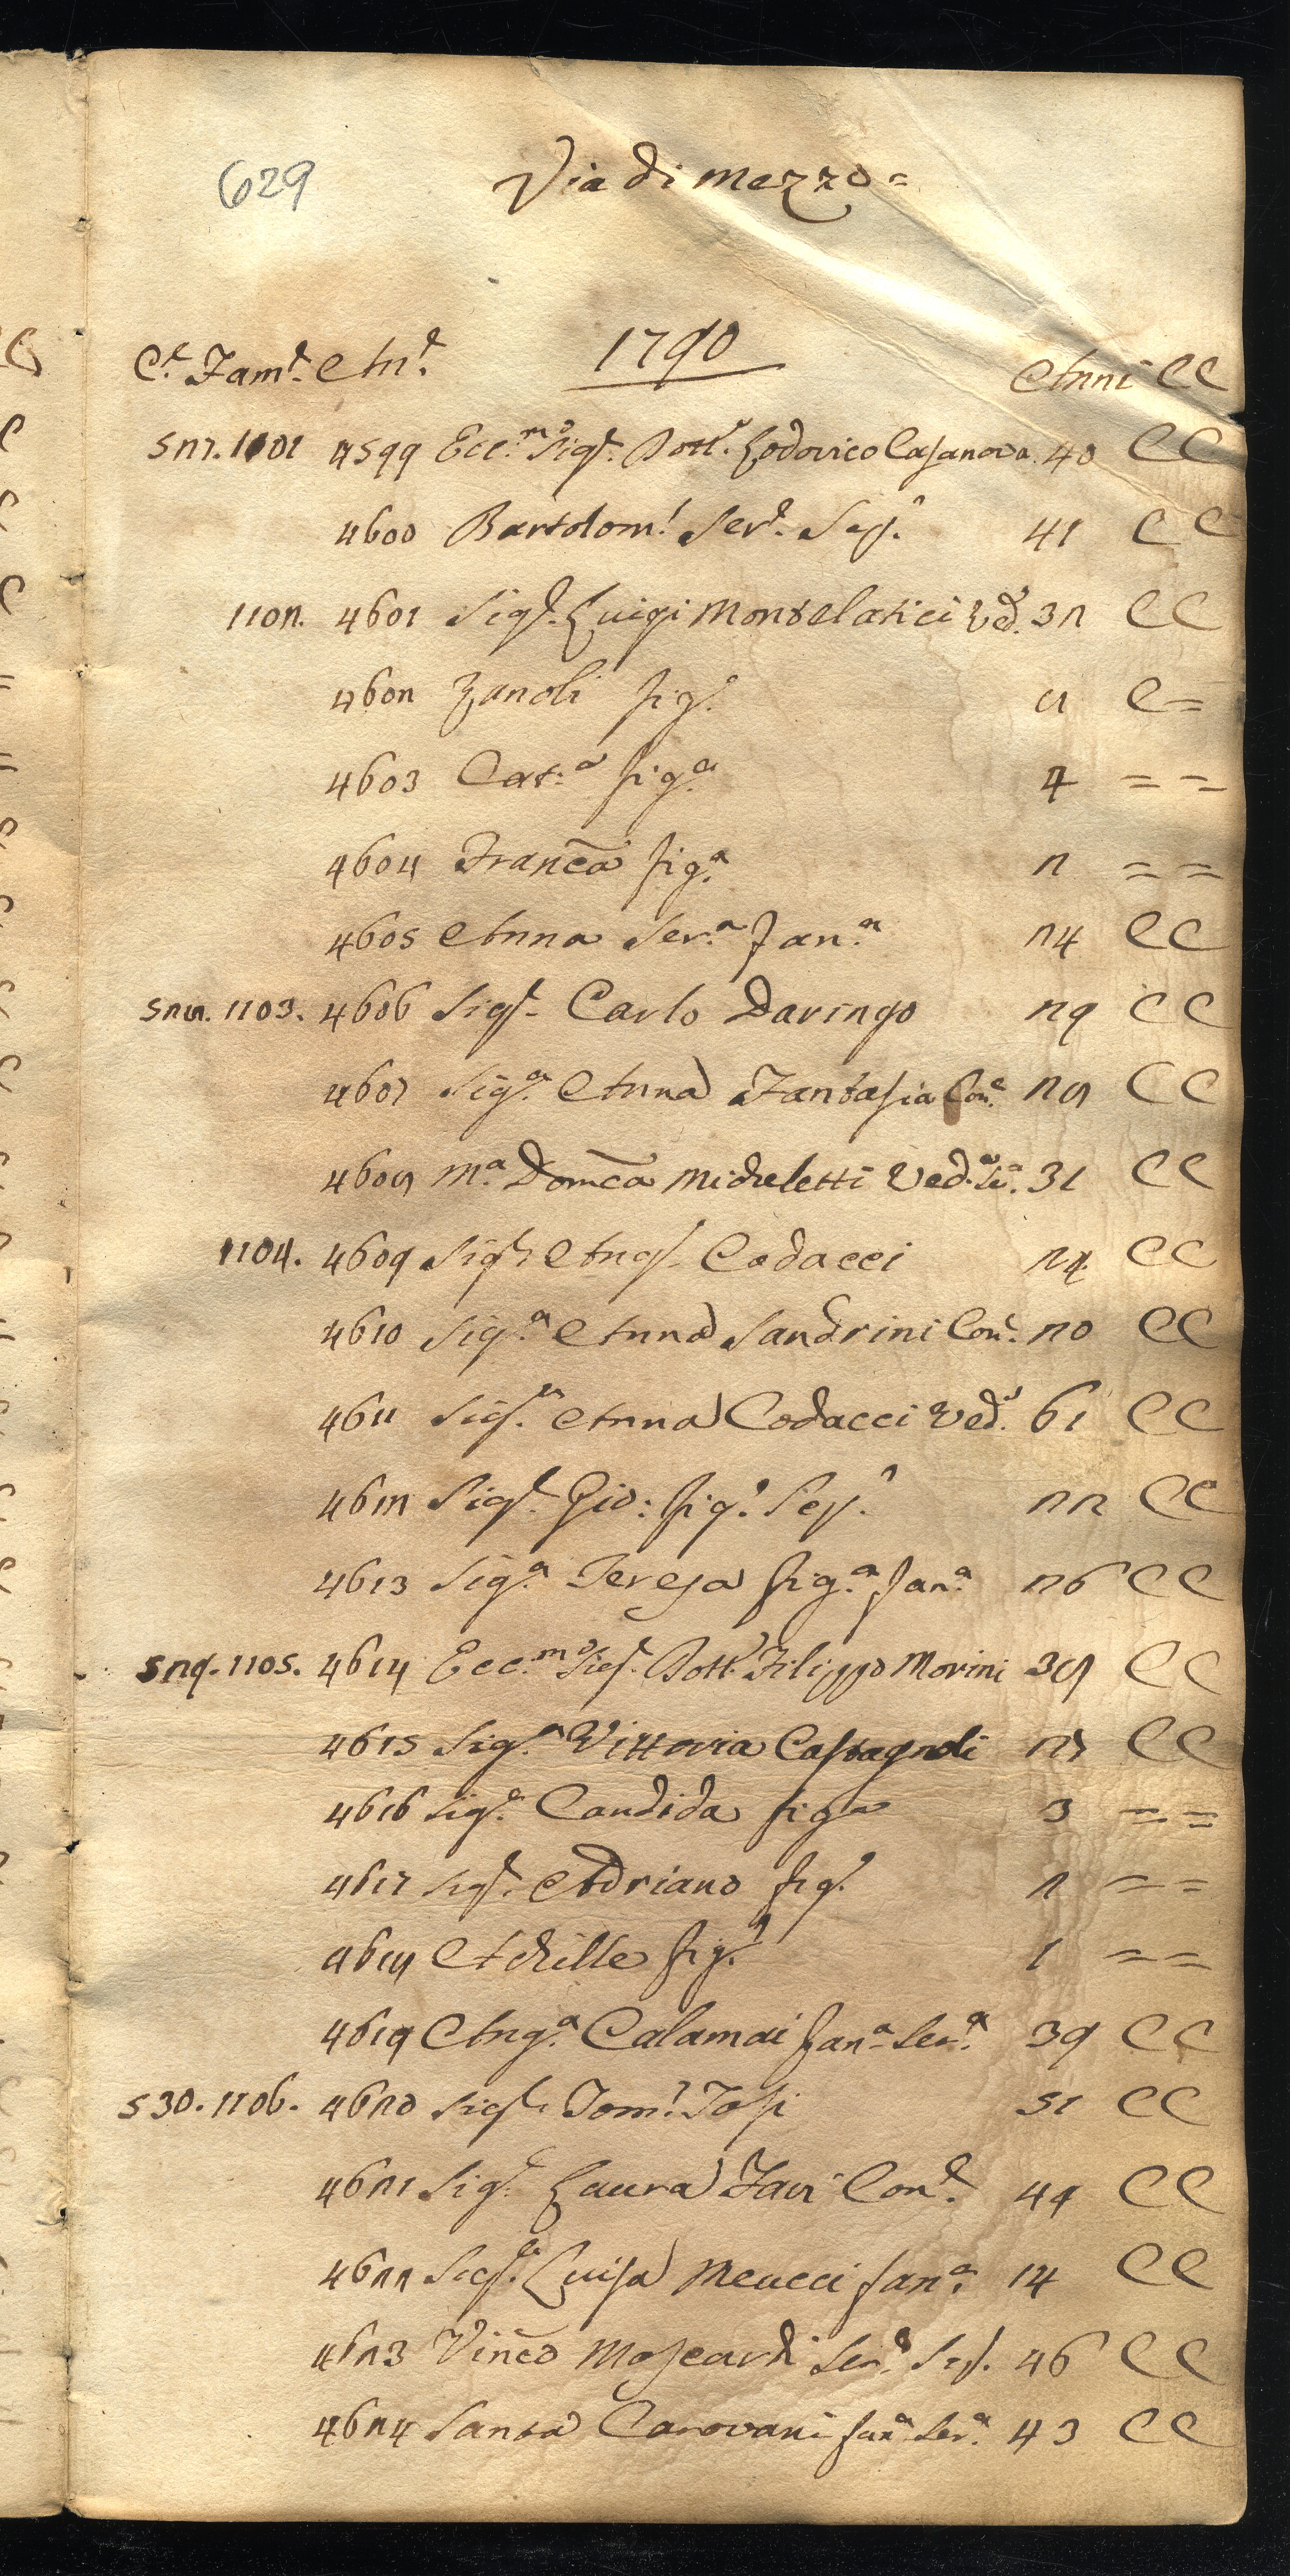 629
Via di Mezzo =
1790
C.e Fam.e An.e Anni CC
527. 1101 4599 Ecc.mo Sig.r Dott.r Lodovico Casanova 40 CC
4600 Bartolom.o Ser.e Sep.o 41 CC
1102. 4601 Sig.r Luigi Montelatici Ved.o 32 CC
4602 Zanobi fig.o 8 C=
4603 Cat.a fig.a 4 = =
4604 Franc̃a fig.a 2 = =
4605 Anna Ser.a fan.a 24 CC
528. 1103. 4606 Sig.r Carlo Daringo 29 CC
4607 Sig.a Anna Fantasia Con.e 28 CC
4608 M.a Dom̃ca Micheletti Ved.a Se.a 31 CC
1104. 4609 Sig.r Ang.o Codacci 24 CC
4610 Sig.a Anna Sandrini Con.e 20 CC
4611 Sig.a Anna Codacci Ved.a 61 CC
4612 Sig.r Gio: fig.o Sep.o 22 CC
4613 Sig.a Teresa fig.a fan.a 26 CC
529. 1105. 4614 Ecc.mo Sig.r Dott.r Filippo Morini 38 CC
4615 Sig.a Vittoria Castagnoli 27 CC
4616 Sig.a Candida figa 3 = =
4617 Sig.r Adriano fig.o 2 = =
4618 Achille fig.o 1 = =
4619 Ang.a Calamai fan.a Ser.a 39 CC
530. 1106. 4620 Sig.r Tom.o Tosi 51 CC
4621 Sig.a Laura Favi Con.e 44 CC
4622 Sig.a Luisa Meucci fan.a 14 CC
4623 Vinc̃o Moscardi Ser.e Sep. 46 CC
4624 Santa Carovani fan.a Ser.a 43 CC